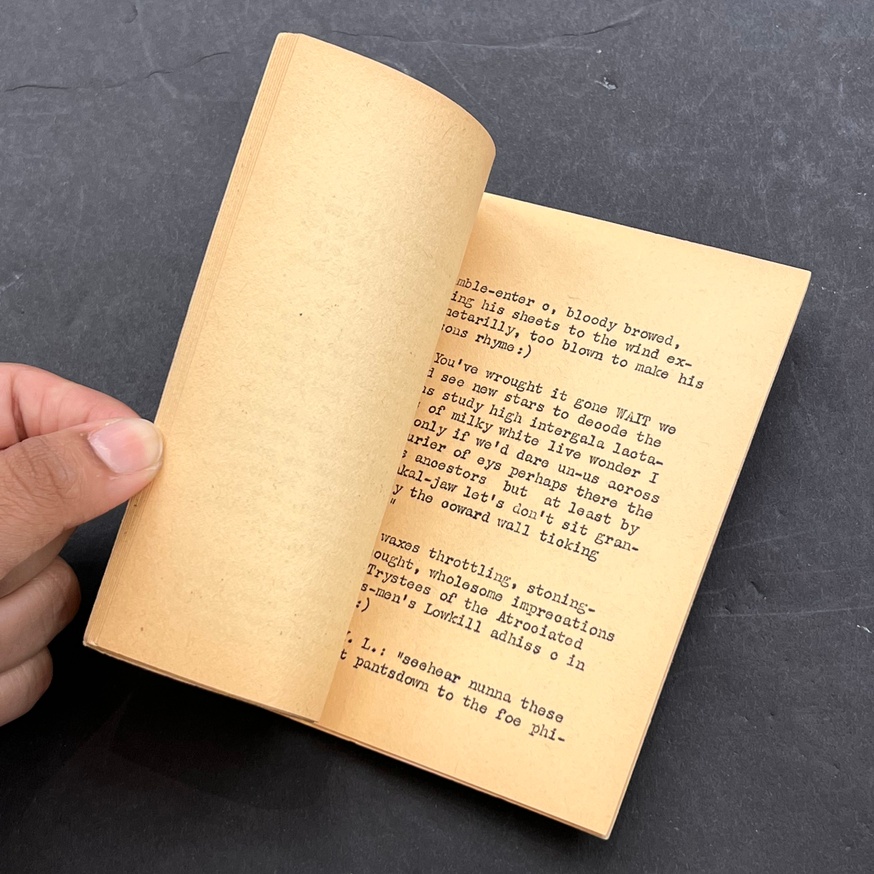 mble-enter o, bloody browed,
ing his sheets to the wind ex-
netarilly, too blown to make his
ous rhyme:)
You've wrought it gone WAIT we
d see new stars to decode the
ns study high intergala lacta-
of milky white live wonder I
only if we'd dare un-us across
urier of eys perhaps there the
s ancestors but at least by
akal-jaw let's don't sit gran-
y the coward wall ticking
"
waxes throttling, stoning-
ought, wholesome imprecations
Trystees of the Atrociated
s-men's Lowkill adhiss o in
:)
. L.: "seehear nunna these
t pantsdown to the foe phi-